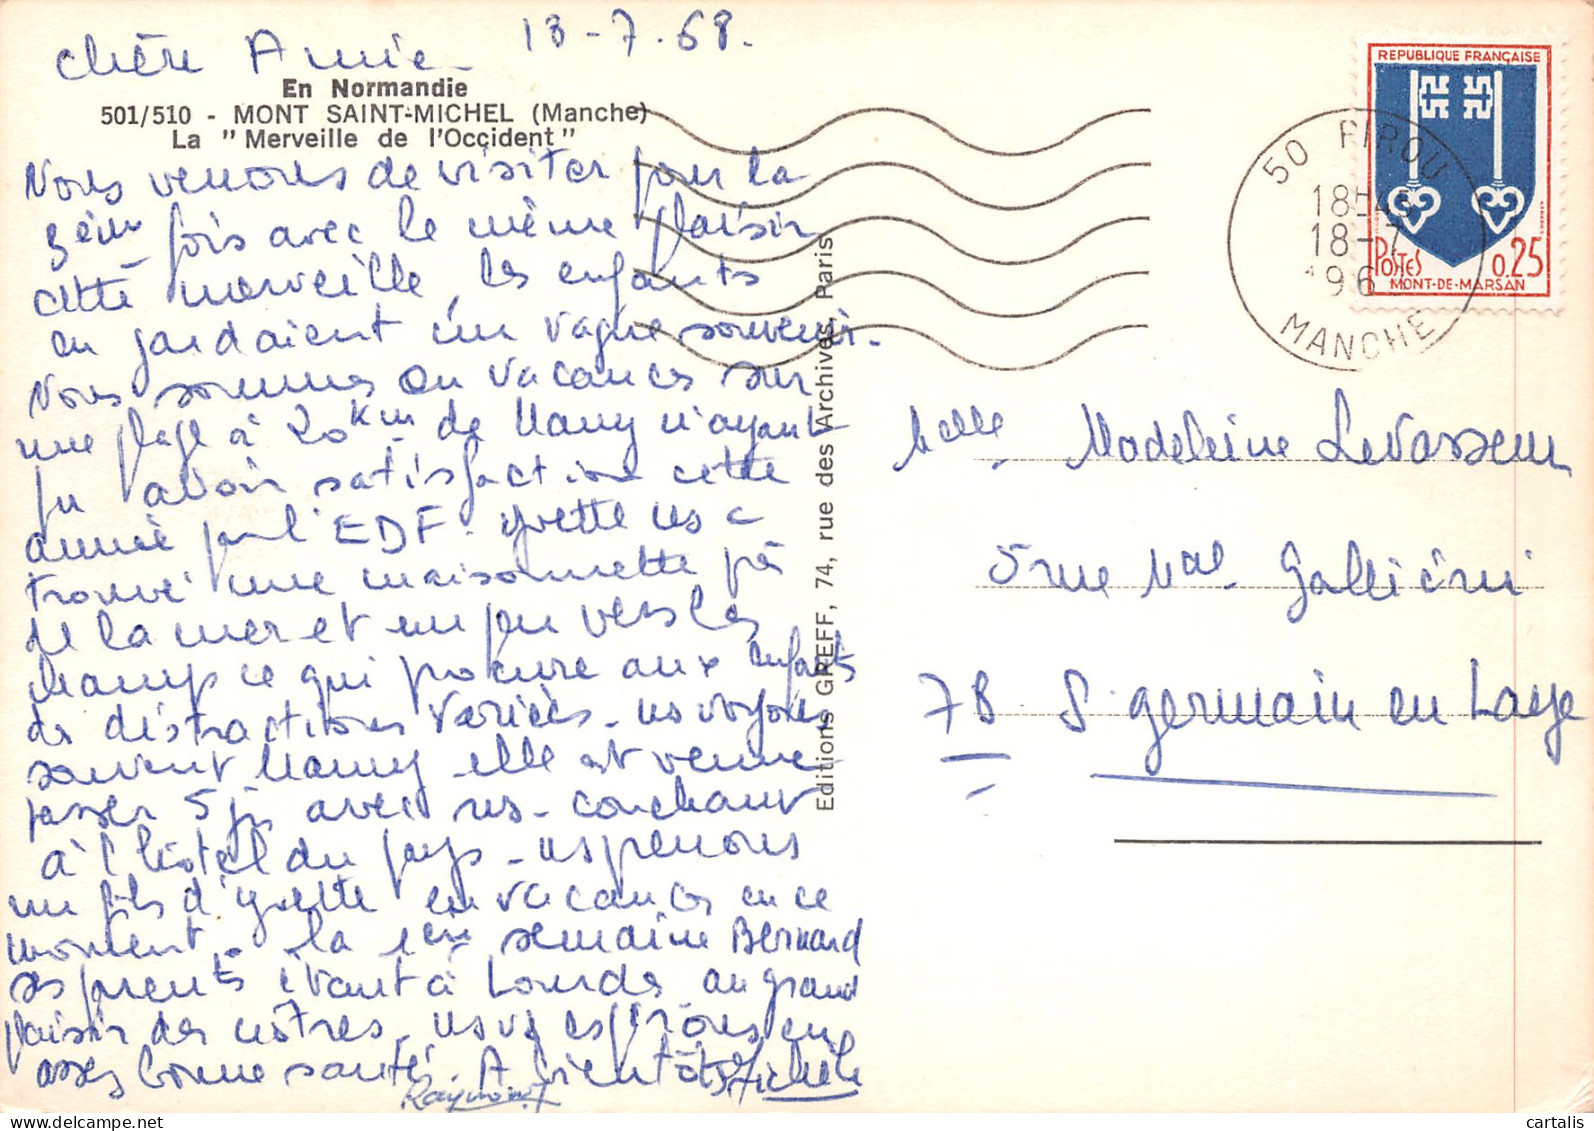 18-7-68.
Chère Amie
En Normandie
501/510 - MONT SAINT-MICHEL (Manche)
La "Merveille de l'Occident"
Nous venons de visiter pour la
3ème fois avec le même plaisir
cette merveille, les enfants
en gardaient un vague souvenir.
Nous sommes en vacances sur
une plage à 20 km de Mamy n'ayant
pu avoir satisfaction cette
année par l'EDF. Yvette ns a
trouvé une maisonnette près
de la mer et un peu vers les
champs ce qui procure aux enfants
des distractions variées. ns voyons
souvent Mamy elle est venue
passer 5 jrs avec ns - couchant
à l'hôtel du pays - ns prenons
un fils d'Yvette en vacances en ce
moment. la 1ère semaine Bernard
ses parents étant à Lourdes au grand
plaisir des nôtres. ns vs espérons en
assez bonne santé. A bientôt Michèle
Raymond
Editions GREFF, 74, rue des Archives, Paris
REPUBLIQUE FRANÇAISE
POSTES 0.25
MONT-DE-MARSAN
50 PIROU
18H45
18-7
196
MANCHE
Melle Madeleine Levasseur
5 rue Mal Galliéni
78 St germain en Laye
cartalis